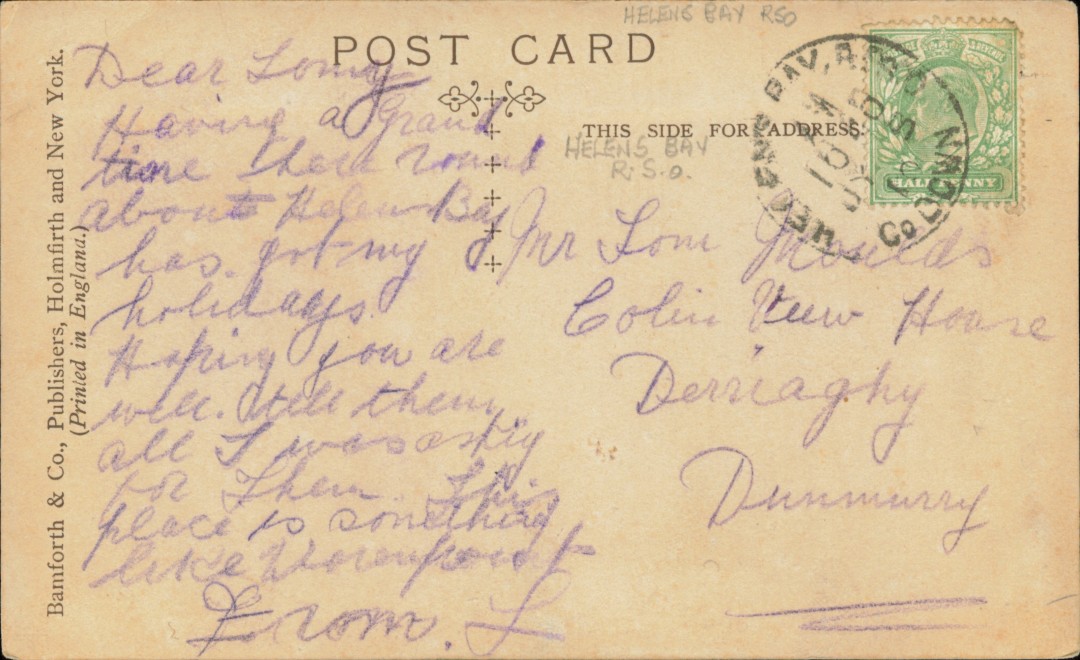 HELENS BAY RSO
POST CARD
THIS SIDE FOR ADDRESS.
HELENS BAY
R.S.O.
HELENS BAY, R.S.O.
Co DOWN
HALFPENNY
Bamforth & Co., Publishers, Holmfirth and New York.
(Printed in England.)
Dear Tomy
Having a Grand
time there round
about Helens Bay
has. got my
holidays.
Hoping you are
well. tell them
all I was asking
for Them. This
place is something
like
From. L
Mr Tom Moulds
Colin View House
Derriaghy
Dunmurry